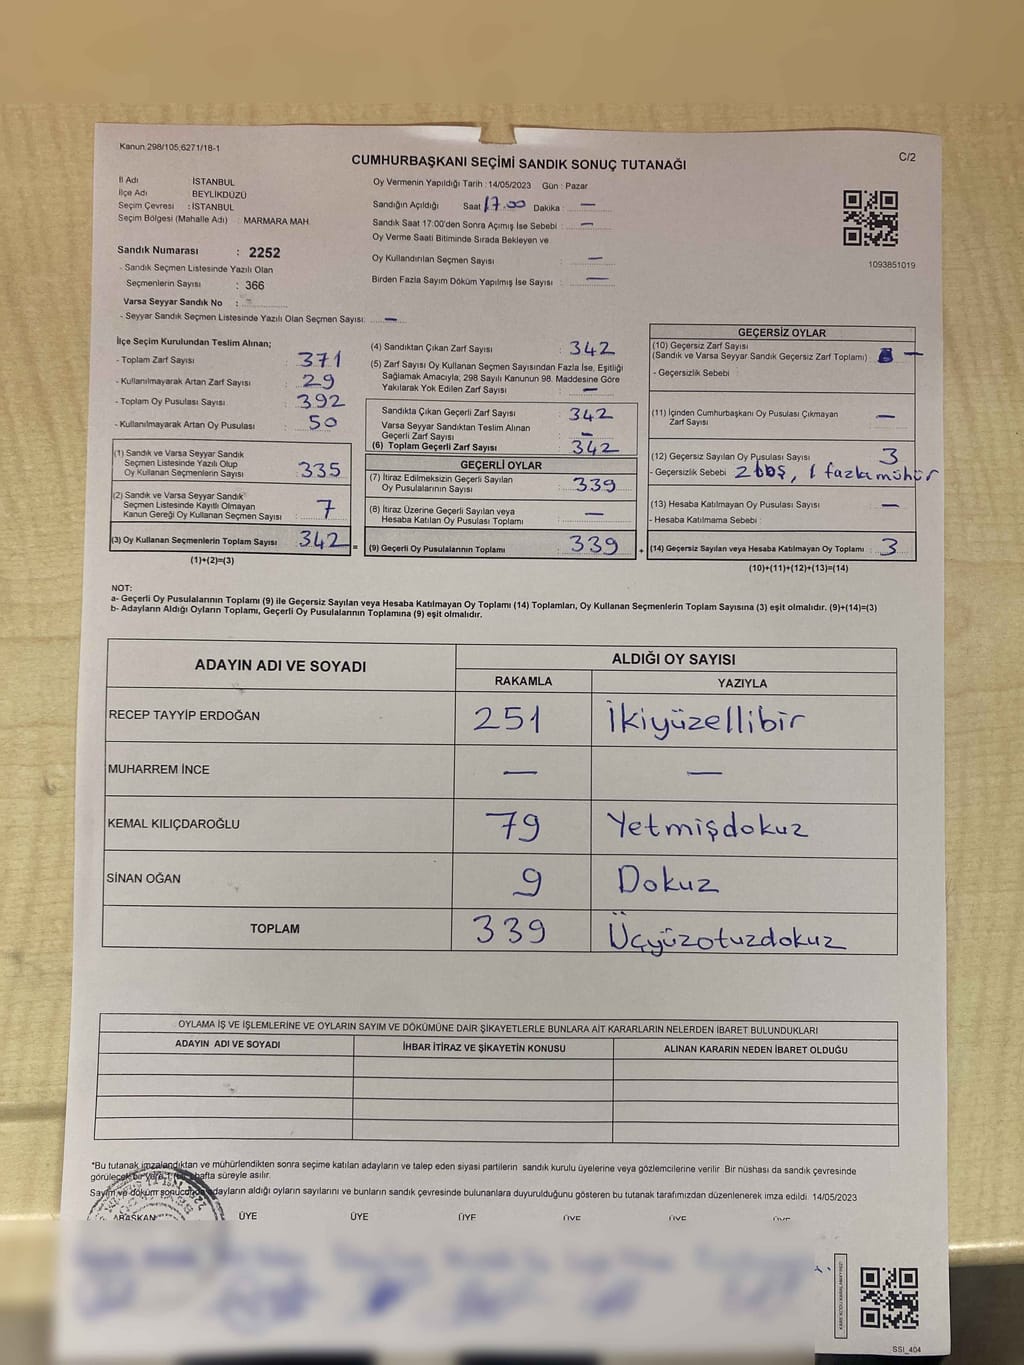 Kanun 298/105;6271/18-1
C/2
CUMHURBAŞKANI SEÇİMİ SANDIK SONUÇ TUTANAĞI
İl Adı : İSTANBUL
İlçe Adı : BEYLİKDÜZÜ
Seçim Çevresi : İSTANBUL
Seçim Bölgesi (Mahalle Adı) : MARMARA MAH.
Sandık Numarası : 2252
- Sandık Seçmen Listesinde Yazılı Olan
Seçmenlerin Sayısı : 366
Varsa Seyyar Sandık No :
- Seyyar Sandık Seçmen Listesinde Yazılı Olan Seçmen Sayısı: —
Oy Vermenin Yapıldığı Tarih : 14/05/2023 Gün : Pazar
Sandığın Açıldığı Saat 17.00 Dakika : —
Sandık Saat 17:00'den Sonra Açımış İse Sebebi : —
Oy Verme Saati Bitiminde Sırada Bekleyen ve
Oy Kullandırılan Seçmen Sayısı : —
Birden Fazla Sayım Döküm Yapılmış İse Sayısı : —
1093851019
İlçe Seçim Kurulundan Teslim Alınan;
- Toplam Zarf Sayısı : 371
- Kullanılmayarak Artan Zarf Sayısı : 29
- Toplam Oy Pusulası Sayısı : 392
- Kullanılmayarak Artan Oy Pusulası : 50
(1) Sandık ve Varsa Seyyar Sandık
Seçmen Listesinde Yazılı Olup
Oy Kullanan Seçmenlerin Sayısı : 335
(2) Sandık ve Varsa Seyyar Sandık
Seçmen Listesinde Kayıtlı Olmayan
Kanun Gereği Oy Kullanan Seçmen Sayısı : 7
(3) Oy Kullanan Seçmenlerin Toplam Sayısı : 342 =
(1)+(2)=(3)
(4) Sandıktan Çıkan Zarf Sayısı : 342
(5) Zarf Sayısı Oy Kullanan Seçmen Sayısından Fazla İse, Eşitliği
Sağlamak Amacıyla; 298 Sayılı Kanunun 98. Maddesine Göre
Yakılarak Yok Edilen Zarf Sayısı : —
Sandıkta Çıkan Geçerli Zarf Sayısı : 342
Varsa Seyyar Sandıktan Teslim Alınan
Geçerli Zarf Sayısı : —
(6) Toplam Geçerli Zarf Sayısı : 342
GEÇERLİ OYLAR
(7) İtiraz Edilmeksizin Geçerli Sayılan
Oy Pusulalarının Sayısı : 339
(8) İtiraz Üzerine Geçerli Sayılan veya
Hesaba Katılan Oy Pusulası Toplamı : —
(9) Geçerli Oy Pusulalarının Toplamı : 339 +
GEÇERSİZ OYLAR
(10) Geçersiz Zarf Sayısı
(Sandık ve Varsa Seyyar Sandık Geçersiz Zarf Toplamı) : —
- Geçersizlik Sebebi :
(11) İçinden Cumhurbaşkanı Oy Pusulası Çıkmayan
Zarf Sayısı : —
(12) Geçersiz Sayılan Oy Pusulası Sayısı : 3
- Geçersizlik Sebebi : 2 boş, 1 fazla mühür
(13) Hesaba Katılmayan Oy Pusulası Sayısı : —
- Hesaba Katılmama Sebebi :
(14) Geçersiz Sayılan veya Hesaba Katılmayan Oy Toplamı : 3
(10)+(11)+(12)+(13)=(14)
NOT:
a- Geçerli Oy Pusulalarının Toplamı (9) ile Geçersiz Sayılan veya Hesaba Katılmayan Oy Toplamı (14) Toplamları, Oy Kullanan Seçmenlerin Toplam Sayısına (3) eşit olmalıdır. (9)+(14)=(3)
b- Adayların Aldığı Oyların Toplamı, Geçerli Oy Pusulalarının Toplamına (9) eşit olmalıdır.
ADAYIN ADI VE SOYADI
ALDIĞI OY SAYISI
RAKAMLA YAZIYLA
RECEP TAYYİP ERDOĞAN 251 İkiyüzellibir
MUHARREM İNCE — —
KEMAL KILIÇDAROĞLU 79 Yetmişdokuz
SİNAN OĞAN 9 Dokuz
TOPLAM 339 Üçyüzotuzdokuz
OYLAMA İŞ VE İŞLEMLERİNE VE OYLARIN SAYIM VE DÖKÜMÜNE DAİR ŞİKAYETLERLE BUNLARA AİT KARARLARIN NELERDEN İBARET BULUNDUKLARI
ADAYIN ADI VE SOYADI İHBAR İTİRAZ VE ŞİKAYETİN KONUSU ALINAN KARARIN NEDEN İBARET OLDUĞU
*Bu tutanak imzalandıktan ve mühürlendikten sonra seçime katılan adayların ve talep eden siyasi partilerin sandık kurulu üyelerine veya gözlemcilerine verilir. Bir nüshası da sandık çevresinde
görülecek bir yere 1 hafta süreyle asılır.
Sayım ve döküm sonucunda adayların aldığı oyların sayılarını ve bunların sandık çevresinde bulunanlara duyurulduğunu gösteren bu tutanak tarafımızdan düzenlenerek imza edildi. 14/05/2023
BAŞKAN ÜYE ÜYE ÜYE ÜYE ÜYE ÜYE
SSI_404